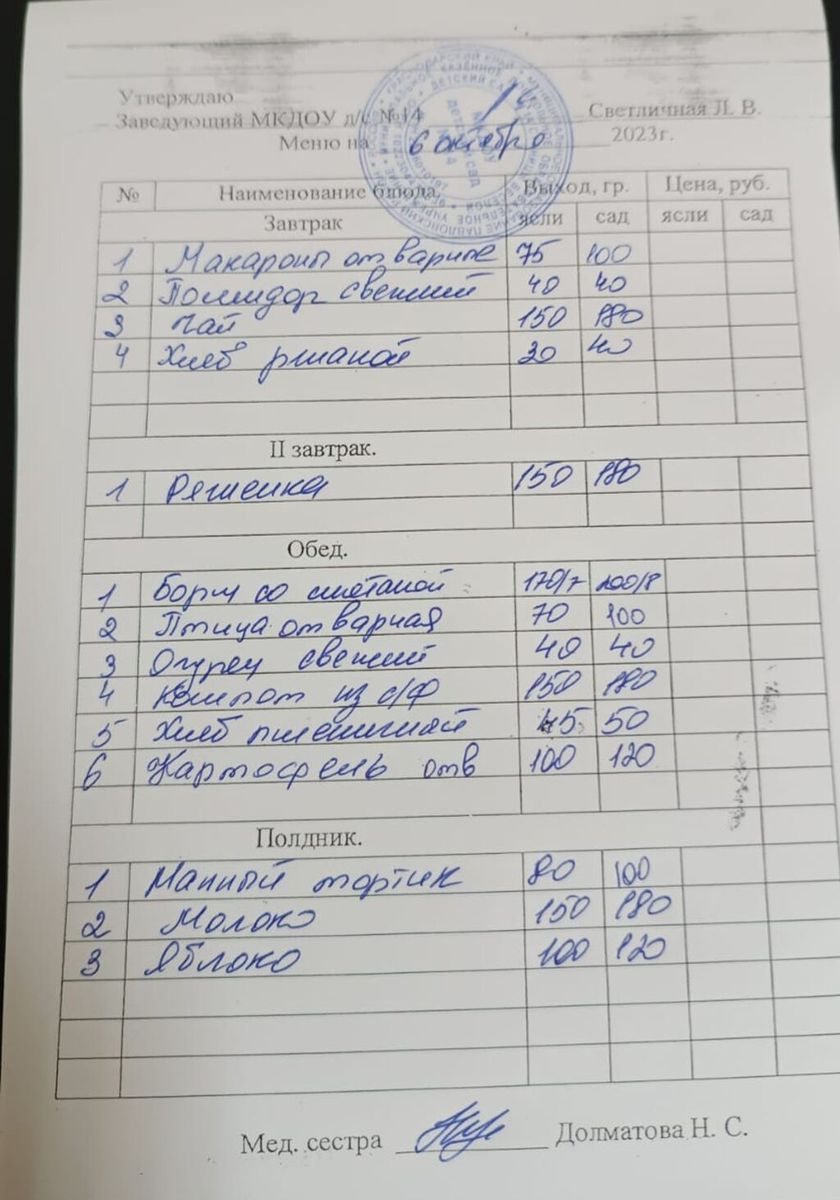 Утверждаю
Заведующий МКДОУ д/с №14 Светличная Л. В.
Меню на 6 октября 2023г.
№ Наименование блюда. Выход, гр. Цена, руб.
Завтрак ясли сад ясли сад
1 Макароны отварные 75 100
2 Помидор свежий 40 40
3 Чай 150 180
4 Хлеб ржаной 30 40
II завтрак.
1 Ряженка 150 180
Обед.
1 Борщ со сметаной 170/7 200/8
2 Птица отварная 70 100
3 Огурец свежий 40 40
4 Компот из с/ф 150 180
5 Хлеб пшеничный 45 50
6 Картофель отв 100 120
Полдник.
1 Манный тортик 80 100
2 Молоко 150 180
3 Яблоко 100 120
Мед. сестра Долматова Н. С.